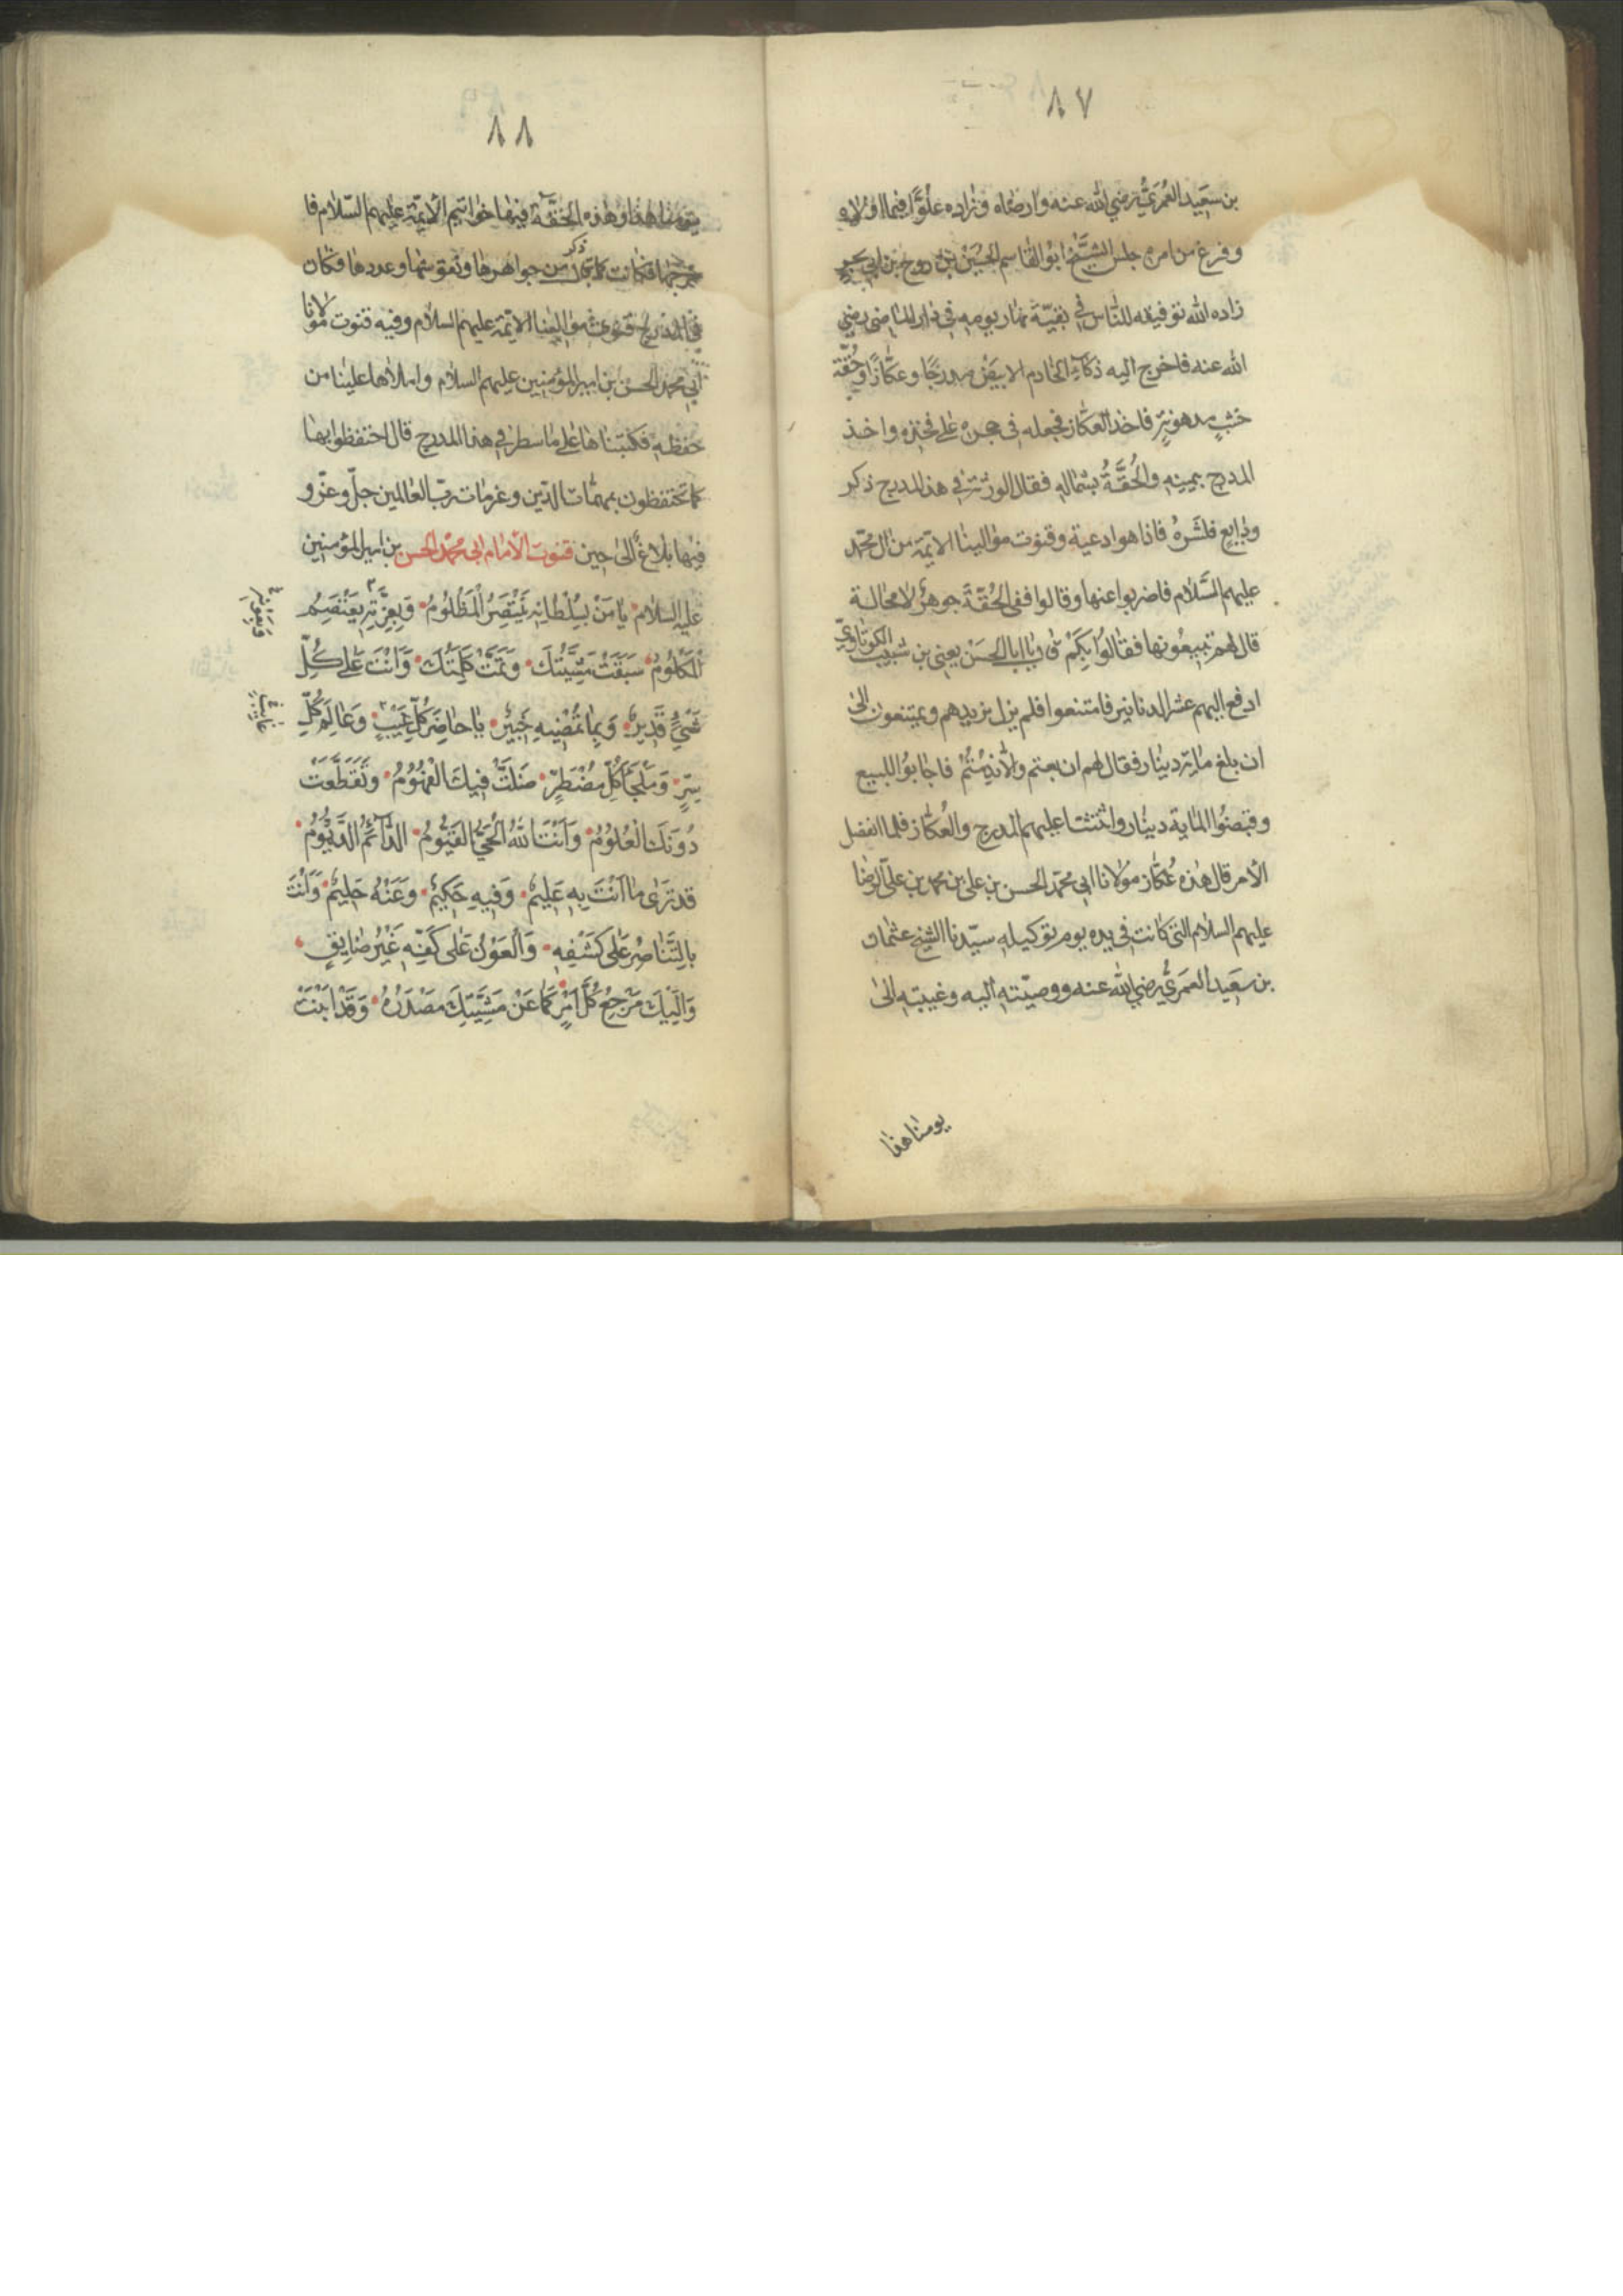 ٨٧
بن سَعِيد العُمَريّ رضي الله عنه وارضاه وزاده علوًّا فيما اولاه
وفرغ من امره جلس الشيَّخ ابوُ القاسم الحسَيْن بن روح بن ابي بحر
زاده الله توفيقه للنّاس في بقيّة نهار يومه في دار الماضى رضي
الله عنه فاخرج اليه ذكاء الخادم الابيض مدرجًا وعكّازًا وحُقّة
خشبٍ مدهونةٍ فاخذ العكاز فجعله فى حجره على فخذه واخذ
المدرج بيمينه والحُقَّةُ بشماله فقال لورثته في هذا المدرج ذكر
ودايع فنشَرهُ فاذا هو ادعية وقنوت موالينا الايمّة من ال محمّد
عليهم السَّلام فاضربوا عنها وقالوا ففى الحُقّة جوهرٌ لا محالة
قال لهم تبيعُونها فقالوُا بكَمْ قال يا ابا الحسَنْ يعنى بن شبيب الكوثاويّ
ادفع اليهم عشرة الدنانير فامتنعوا فلم يزل يزيدهم ويمتنعون الى
ان بلغ ماية دينار فقال لهم ان بعتم والّا ندِمْتُمْ فاجابوُا للبيع
وقبضوُا الماية دينار واستثنا عليهم المدرج والعُكّاز فلما انفصل
الأمر قال هٰذه عُكّاز مولانا ابى محمّد الحسن بن على بن محمد بن علىّ الرضا
عليهم السلام التى كانت في يده يوم توكيله سيّدنا الشيخ عثمان
بن سعَيد العَمَريُّ رضي الله عنه ووصيّته اليه وغيبته الىٰ
يومنا هذا
٨٨
يومنا هذا وهٰذه الحُقّة فيها خواتيم الايمّة عليهم السّلام فا
خرجها فكانت كما ذكر من جواهرها ونقوشها وعددها وكان
في المدرج قنوت موالينا الايمّة عليهم السلام وفيه قنوت مولانا
أبي محمد الحسن بن امير المؤمنين عليهم السلام واملاها علينا من
حفظه فكتبناها على ما سطر في هذا المدرج قال احتفظوا بها
كما تحتفظون بمهمّات الدّين وعزمات ربّ العالمين جلّ وعزّ و
فيها بلاغ الىٰ حين قنوت الامام ابى محمّد الحسن بن امير المؤمنين
عليه السلام يا مَنْ بسُلْطَانِهِ يَنْتَصِرُ الْمَظْلُومُ وَبِعِزَّتِهِ يَعْتَصِمُ
الْمَكْلُومُ سَبَقَتْ مَشِيَّتُكَ وَتَمَّتْ كَلِمَتُكَ وَاَنْتَ عَلىٰ كُلِّ
شَيْءٍ قَدِيرٌ وَبِمَا تُمْضِيهِ خَبِيرٌ يَا حَاضِرَ كُلِّ غَيْبٍ وَعَالِمَ كُلِّ
سِرٍّ وَمَلْجَأَ كُلِّ مُضْطَرٍّ ضَلَّتْ فِيكَ الْفُهُومُ وَتَقَطَّعَتْ
دُونَكَ الْعُلُومُ وَاَنْتَ اللّٰهُ الْحَيُّ الْقَيُّومُ الدَّائِمُ الدَّيْمُومُ
قد تَرىٰ مَا اَنْتَ بِهِ عَلِيمٌ وَفِيهِ حَكِيمٌ وَعَنْهُ حَلِيمٌ وَاَنْتَ
بِالتَّنَاصُرِ عَلىٰ كَشْفِهِ وَالْعَوْنِ عَلىٰ كَفِّهِ غَيْرُ ضَايِقٍ
وَاِلَيْكَ مَرْجِعُ كُلِّ اَمْرٍ كَمَا عَنْ مَشِيَّتِكَ مَصْدَرُهُ وَقَدْ اَبَنْتَ